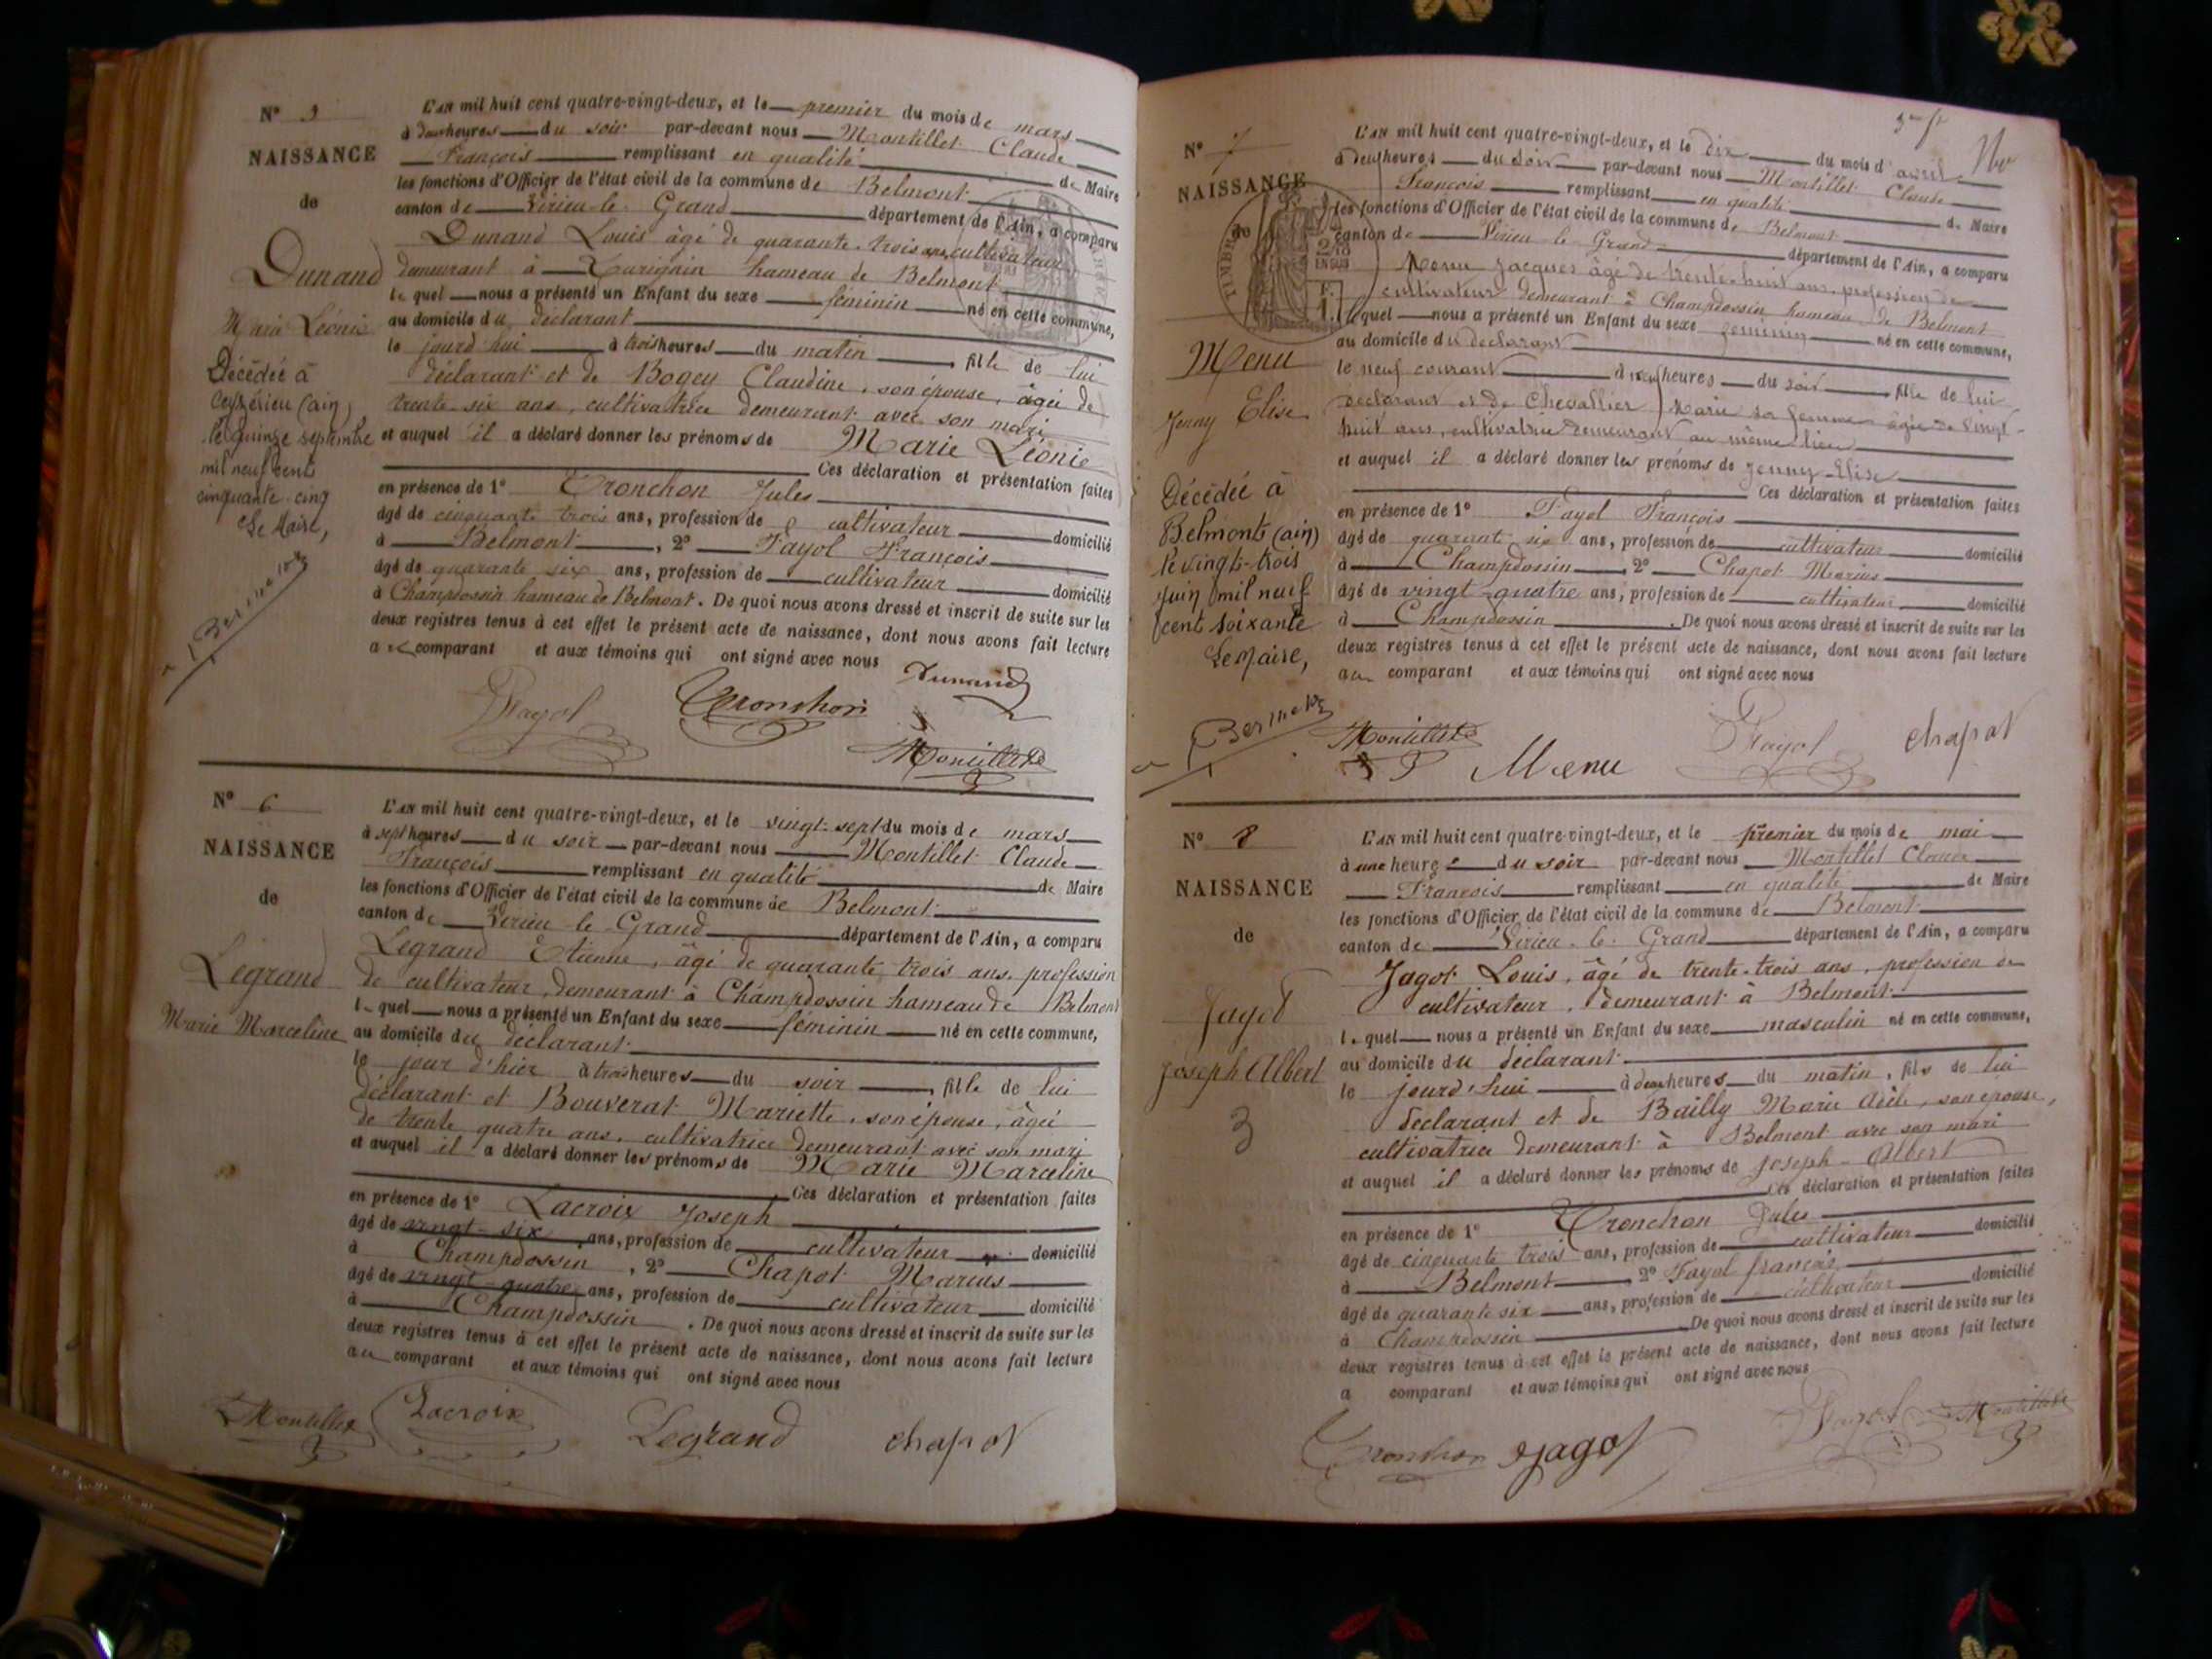 N° 5
NAISSANCE
de
Dunand
Marie Léonie
Décédée à
Ceyzérieu (ain)
le quinze septembre
mil neuf cent
cinquante-cinq
Le Maire,
L'AN mil huit cent quatre-vingt-deux, et le premier du mois de mars
à deux heures du soir par-devant nous Montillet Claude
François remplissant en qualité de Maire
les fonctions d'Officier de l'état civil de la commune de Belmont
canton de Virieu-le-Grand département de l'Ain, a comparu
Dunand Louis âgé de quarante-trois ans, cultivateur
demeurant à hameau de Belmont
lequel nous a présenté un Enfant du sexe féminin né en cette commune,
au domicile du déclarant
le jourd'hui à trois heures du matin fille de lui
déclarant et de Bogey Claudine, son épouse, âgée de
trente-six ans, cultivatrice demeurant avec son mari
et auquel il a déclaré donner les prénoms de Marie Léonie
Ces déclaration et présentation faites
en présence de 1° Tronchon Jules
âgé de cinquante trois ans, profession de cultivateur domicilié
à Belmont, 2° Fayol François
âgé de quarante six ans, profession de cultivateur domicilié
à Champdossin hameau de Belmont. De quoi nous avons dressé et inscrit de suite sur les
deux registres tenus à cet effet le présent acte de naissance, dont nous avons fait lecture
au comparant et aux témoins qui ont signé avec nous
Dunand
Fayol Tronchon
Montillet
N° 6
NAISSANCE
de
Legrand
Marie Marceline
L'AN mil huit cent quatre-vingt-deux, et le vingt-sept du mois de mars
à sept heures du soir par-devant nous Montillet Claude
François remplissant en qualité de Maire
les fonctions d'Officier de l'état civil de la commune de Belmont
canton de Virieu-le-Grand département de l'Ain, a comparu
Legrand Etienne, âgé de quarante trois ans, profession
de cultivateur, demeurant à Champdossin hameau de Belmont
lequel nous a présenté un Enfant du sexe féminin né en cette commune,
au domicile du déclarant
le jour d'hier à trois heures du soir, fille de lui
déclarant et Bouverat Mariette, son épouse, âgée
de trente quatre ans, cultivatrice demeurant avec son mari
et auquel il a déclaré donner les prénoms de Marie Marceline
Ces déclaration et présentation faites
en présence de 1° Lacroix Joseph
âgé de vingt-six ans, profession de cultivateur domicilié
à Champdossin, 2° Chapot Marius
âgé de vingt-quatre ans, profession de cultivateur domicilié
à Champdossin. De quoi nous avons dressé et inscrit de suite sur les
deux registres tenus à cet effet le présent acte de naissance, dont nous avons fait lecture
au comparant et aux témoins qui ont signé avec nous
Montillet Lacroix Legrand chapot
N° 7
NAISSANCE
de
Menu
Jenny Elise
Décédée à
Belmont (ain)
le vingt-trois
juin mil neuf
cent soixante
Le Maire,
L'AN mil huit cent quatre-vingt-deux, et le dix du mois d'avril
à heures du soir par-devant nous Montillet Claude
François remplissant en qualité de Maire
les fonctions d'Officier de l'état civil de la commune de Belmont
canton de Virieu-le-Grand département de l'Ain, a comparu
Menu Jacques âgé de trente-huit ans, profession de
cultivateur demeurant à Champdossin hameau de Belmont
lequel nous a présenté un Enfant du sexe féminin né en cette commune,
au domicile du déclarant
le neuf courant à heures du soir fille de lui
déclarant et de Chevallier Marie sa femme âgée de vingt-
huit ans, cultivatrice demeurant au même lieu
et auquel il a déclaré donner les prénoms de Jenny-Elise
Ces déclaration et présentation faites
en présence de 1° Fayol François
âgé de quarante-six ans, profession de cultivateur domicilié
à Champdossin, 2° Chapot Marius
âgé de vingt-quatre ans, profession de cultivateur domicilié
à Champdossin. De quoi nous avons dressé et inscrit de suite sur les
deux registres tenus à cet effet le présent acte de naissance, dont nous avons fait lecture
au comparant et aux témoins qui ont signé avec nous
Montillet Menu Fayol chapot
N° 8
NAISSANCE
de
Jagot
Joseph Albert
3
L'AN mil huit cent quatre-vingt-deux, et le premier du mois de mai
à une heure du soir par-devant nous Montillet Claude
François remplissant en qualité de Maire
les fonctions d'Officier de l'état civil de la commune de Belmont
canton de Virieu-le-Grand département de l'Ain, a comparu
Jagot Louis, âgé de trente-trois ans, profession de
cultivateur, demeurant à Belmont
lequel nous a présenté un Enfant du sexe masculin né en cette commune,
au domicile du déclarant
le jourd'hui à deux heures du matin, fils de lui
déclarant et de Bailly Marie Adèle, son épouse,
cultivatrice demeurant à Belmont avec son mari
et auquel il a déclaré donner les prénoms de Joseph-Albert
Ces déclaration et présentation faites
en présence de 1° Tronchon Jules
âgé de cinquante trois ans, profession de cultivateur domicilié
à Belmont, 2° Fayol françois
âgé de quarante six ans, profession de cultivateur domicilié
à Champdossin De quoi nous avons dressé et inscrit de suite sur les
deux registres tenus à cet effet le présent acte de naissance, dont nous avons fait lecture
a comparant et aux témoins qui ont signé avec nous
Tronchon Jagot Fayol Montillet